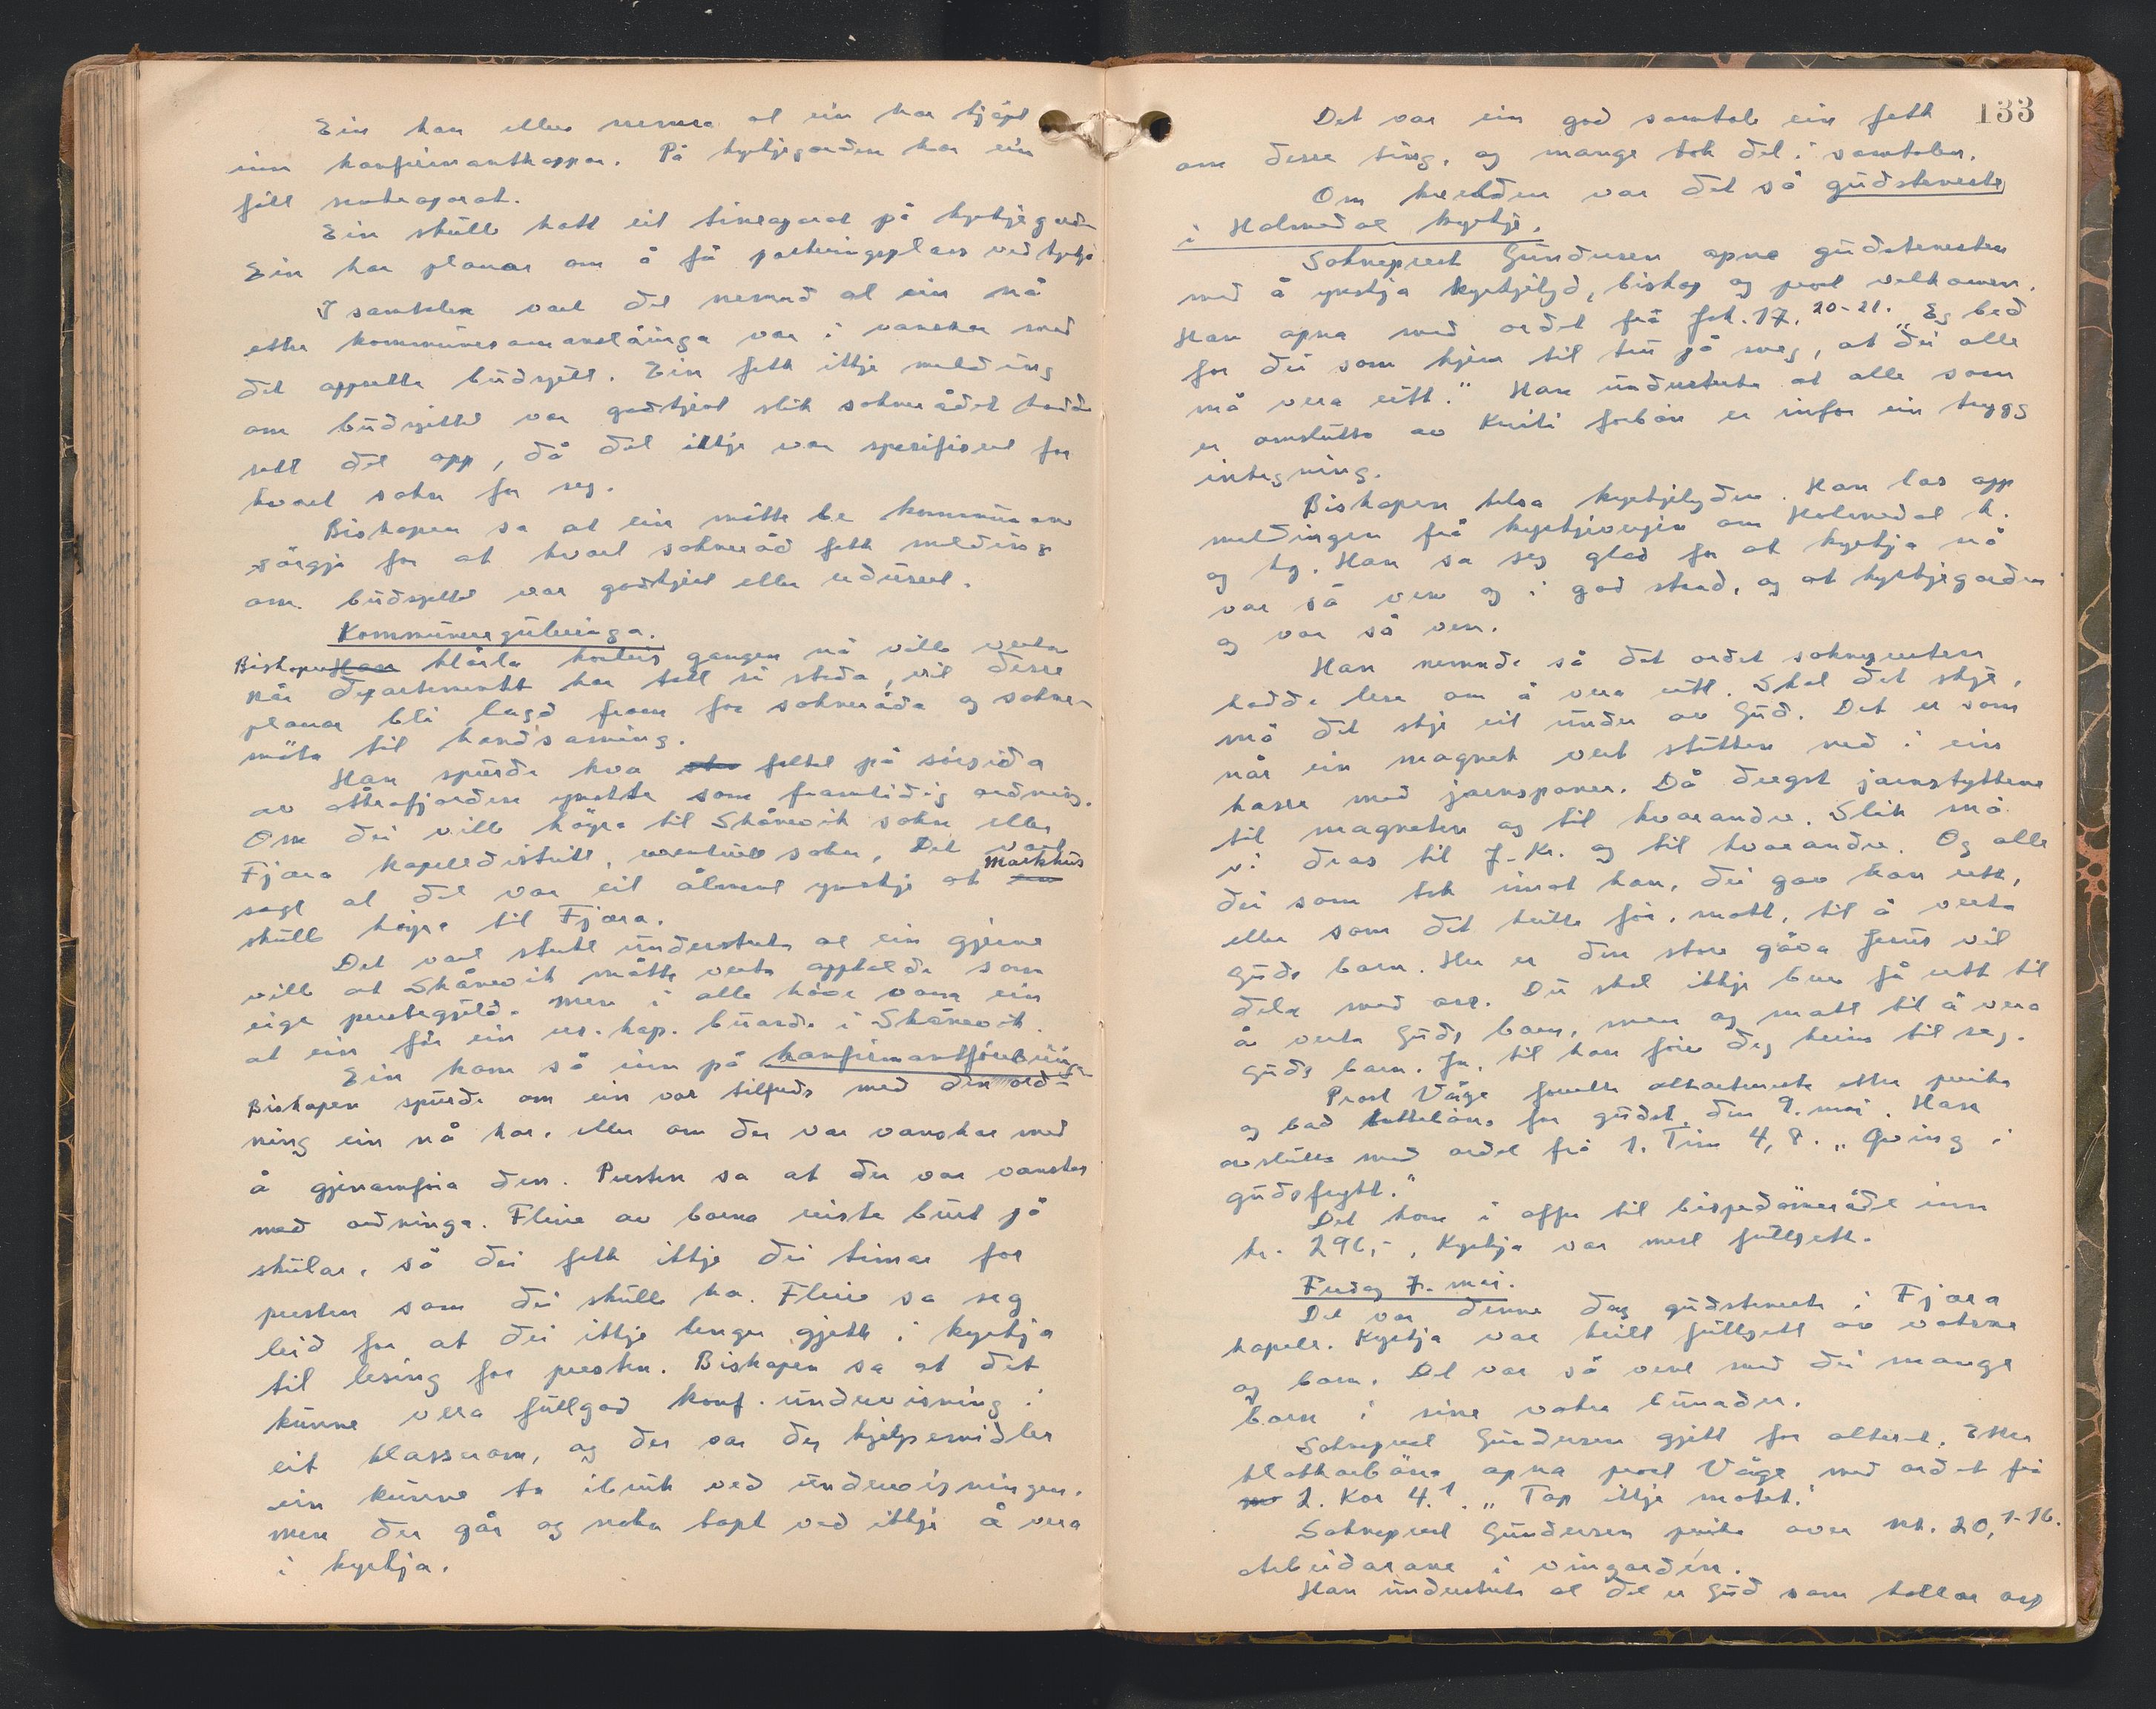 Ein kan elles nemna at ein har kjøpt
inn konfirmantkappar. På kyrkjegarden har ein
fått senkeapparat.
Ein skulle hatt eit tineapparat på kyrkjegarden
Ein har planar om å få parkeringsplass ved kyrkja
I samtalen vart det nemnd at ein nå
etter kommunesamanslåinga var i vanskar med
det oppsette budsjett. Ein fekk ikkje melding
om budsjettet var godkjent slik soknerådet hadde
sett det opp, då det ikkje var spesifisert for
kvart sokn for seg.
Biskopen sa at ein måtte be kommunane
sørgje for at kvart sokneråd fekk melding
om budsjettet var godkjent eller redusert.
Kommunereguleringa.
Biskopen Han klårla korleis gangen nå ville verta
når departementet har teke si støda, vil desse
planar bli lagd fram for sokneråda og sokne-
møta til handsaming.
Han spurde kva folket på sørsida
av Åkrafjorden ynskte som framtidig ordning.
Om dei ville høyra til Skånevik sokn eller
Fjæra kapelldistrikt, eventuelt sokn. Det vart
sagt at det var eit ålment ynskje at Markhus
skulle høyra til Fjæra.
Det vart sterkt understreka at ein gjerne
ville at Skånevik måtte verta oppretthalde som
eige prestegjeld. Men i alle høve vona ein
at ein får ein res. kap. buande i Skånevik.
Ein kom så inn på konfirmantførebuinga
Biskopen spurde om ein var tilfreds med den ord-
ning ein nå har, eller om der var vanskar med
å gjenomføra den. Presten sa at der var vanskar
med ordninga. Fleire av borna reiste burt på
skular, så dei fekk ikkje dei timar for
presten som dei skulle ha. Fleire sa seg
leid for at dei ikkje lenger gjekk i kyrkja
til lesing for presten. Biskopen sa at det
kunne vera fullgod konf. undervisning i
eit klasserom, og der var dei hjelpemidler
ein kunne ta ibruk ved undervisningen.
Men der går og noko tapt ved ikkje å vera
i kyrkja.
133
Det var ein god samtale ein fekk
om desse ting, og mange tok del i samtalen.
Om kvelden var det så gudsteneste
i Holmedal kyrkje.
Sokneprest Gundersen opna gudstenesten
med å ynskja kyrkjelyd, biskop og prost velkomen.
Han opna med ordet frå Joh. 17, 20-21. "Eg bed
for dei som kjem til tru på meg, at dei alle
må vera eitt." Han understreka at alle som
er omslutta av Kristi forbøn er innfor ein trygg
inntegning.
Biskopen helsa kyrkjelyden. Han las opp
meldingen frå kyrkjeverjen om Holmedal k.
og kg. Han sa seg glad for at kyrkja nå
var så ven og i god stand, og at kyrkjegarden
og var så ven.
Han nemnde så det ordet soknepresten
hadde lese om å vera eitt. Skal det skje,
må det skje eit under av Gud. Det er som
når ein magnet vert stukken ned i ein
kasse med jarnsponer. Då dregst jarnstykkene
til magneten og til kvarandre. Slik må
vi dras til J. Kr. og til kvarandre. Og alle
dei som tok imot han, dei gav han rett,
eller som det heitte før, makt, til å verta
Guds barn. Her er den store gåva Jesus vil
dela med oss. Du skal ikkje bere få rett til
å verta Guds barn, men og makt til å vera
Guds barn. Ja, til han fører deg heim til seg.
Prost Våge forretta altartenesta etter preika
og bad kollektbøna for gudst. den 9. mai. Han
avslutta med ordet frå 1. Tim 4, 8. "Øving i
gudsfrykt."
Det kom i offer til bispedømerådet inn
kr. 296,-, Kyrkja var mest fullsett.
Fredag 7. mai.
Det var denne dag gudsteneste i Fjæra
kapell. Kyrkja var heilt fullsett av vaksne
og barn. Det var så vent med dei mange
born i sine vakre bunader.
Sokneprest Gundersen gjekk for alteret. Etter
klokkarbøna opna prost Våge med ordet frå
2. Kor 4.1. "Tap ikkje motet."
Sokneprest Gundersen preika over Mt. 20, 1-16.
Arbeidarane i vingarden.
Han understreka at det er Gud som kallar oss